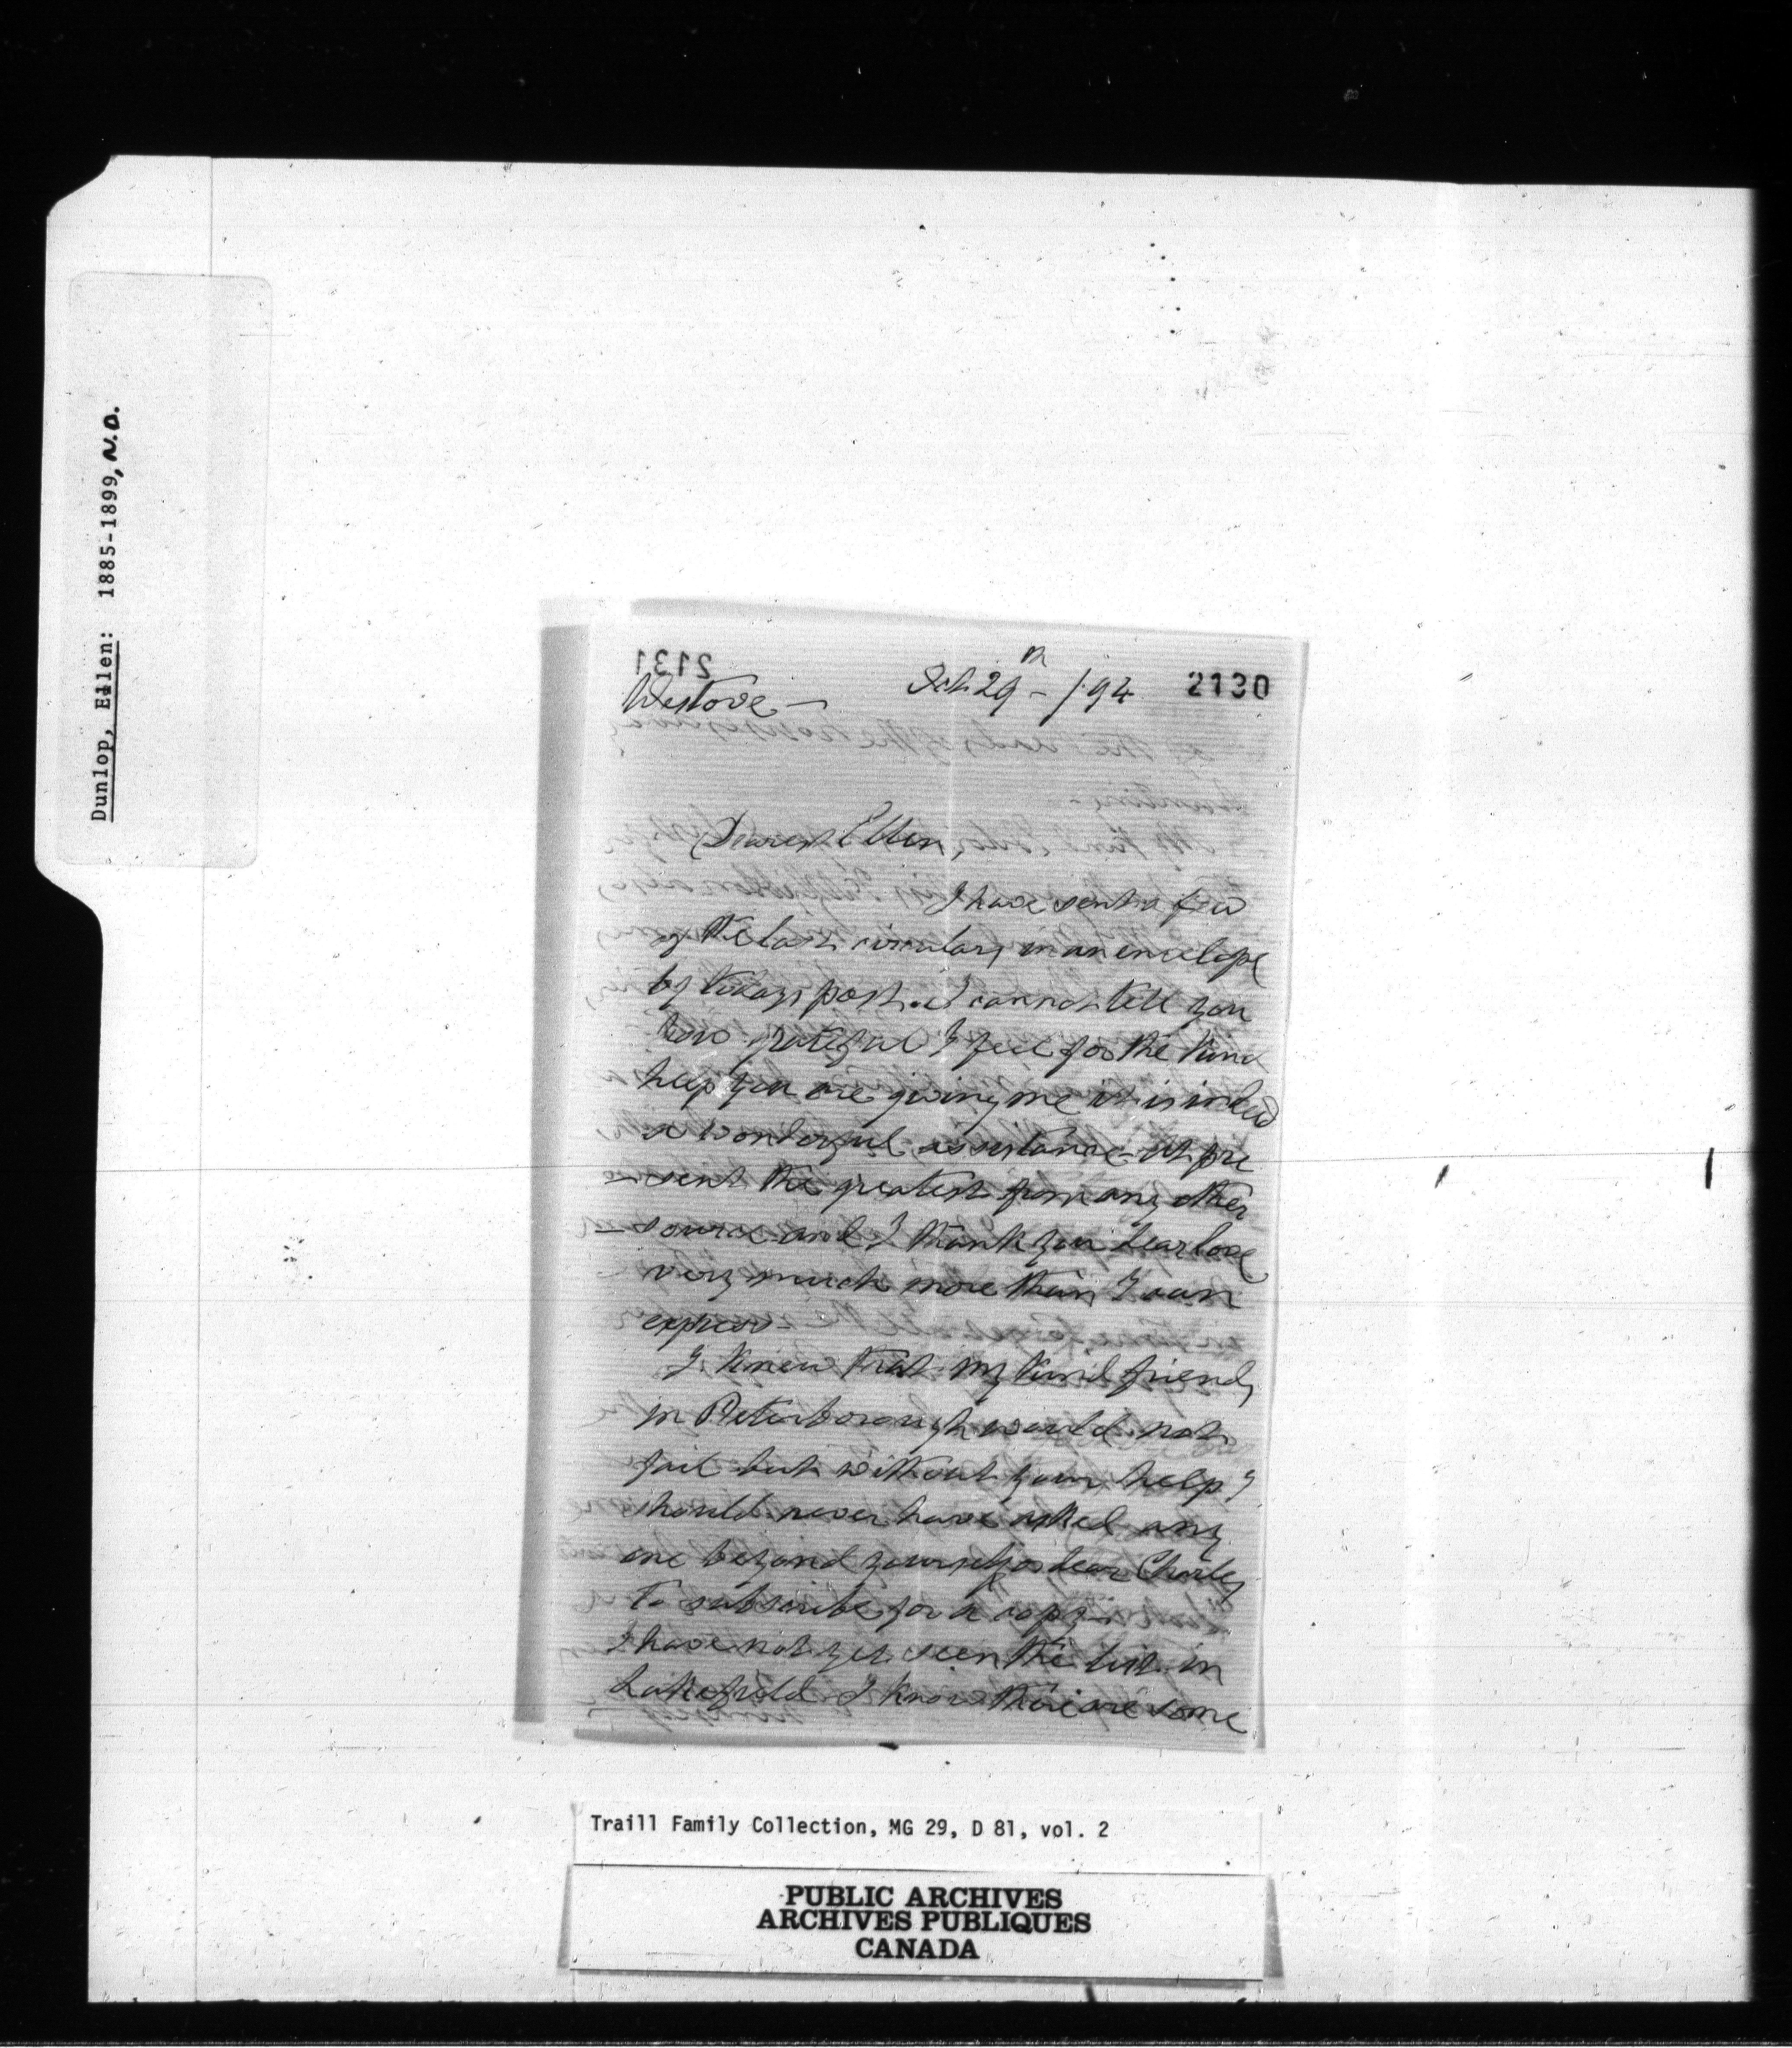 Dunlop, Ellen: 1885-1899, N.D.
2131
Oct 29th - / 94
2130
Westove -
Dearest Ellen,
I have sent a few
of the last circulars in an envelope
by todays post. I cannot tell you
how grateful I feel for the kind
help you are giving me it is indeed
a wonderful assistance - at pre
- sent the greatest from any other
- source - and I thank you dear love
very much more than I can
express -
I knew that my kind friends
in Peterborough would not
fail but without your help I
should never have asked any
one beyond yourself or dear Charley
to subscribe for a copy -
I have not yet seen the list in
Lakefield I know there are some
Traill Family Collection, MG 29, D 81, vol. 2
PUBLIC ARCHIVES
ARCHIVES PUBLIQUES
CANADA